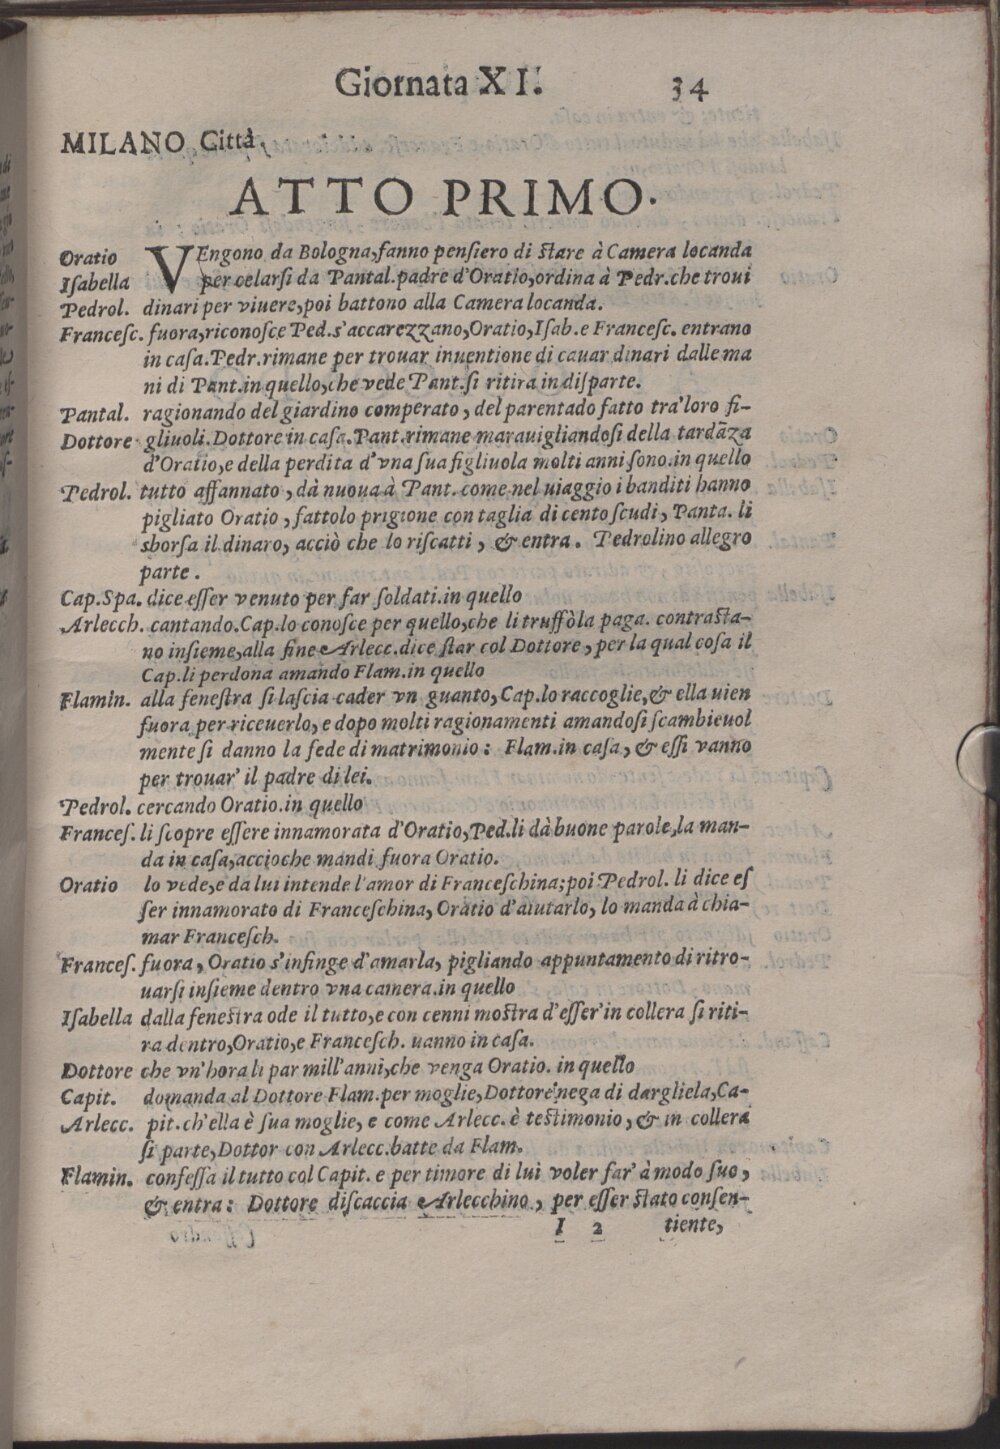 Giornata XI. 34
MILANO Città,
ATTO PRIMO.
Oratio VEngono da Bologna, fanno pensiero di stare à Camera locanda
Isabella per celarsi da Pantal. padre d'Oratio, ordina à Pedr. che troui
Pedrol. dinari per viuere, poi battono alla Camera locanda.
Francesc. fuora, riconosce Ped. s'accarezzano, Oratio, Isab. e Francesc. entrano
in casa. Pedr. rimane per trouar inuentione di cauar dinari dalle ma
ni di Pant. in quello, che vede Pant. si ritira in disparte.
Pantal. ragionando del giardino comperato, del parentado fatto tra' loro fi-
Dottore gliuoli. Dottore in casa. Pant. rimane marauigliandosi della tardāza
d'Oratio, e della perdita d'vna sua figliuola molti anni sono. in quello
Pedrol. tutto affannato, dà nuoua à Pant. come nel uiaggio i banditi hanno
pigliato Oratio, fattolo prigione con taglia di cento scudi, Panta. li
sborsa il dinaro, acciò che lo riscatti, & entra. Pedrolino allegro
parte.
Cap. Spa. dice esser venuto per far soldati. in quello
Arlecch. cantando. Cap. lo conosce per quello, che li truffò la paga. contrasta-
no insieme, alla fine Arlecc. dice star col Dottore, per la qual cosa il
Cap. li perdona amando Flam. in quello
Flamin. alla fenestra si lascia cader vn guanto, Cap. lo raccoglie, & ella uien
fuora per riceuerlo, e dopo molti ragionamenti amandosi scambieuol
mente si danno la fede di matrimonio: Flam. in casa, & essi vanno
per trouar' il padre di lei.
Pedrol. cercando Oratio. in quello
Frances. li scopre essere innamorata d'Oratio, Ped. li dà buone parole, la man-
da in casa, accioche mandi fuora Oratio.
Oratio lo vede, e da lui intende l'amor di Franceschina; poi Pedrol. li dice es
ser innamorato di Franceschina, Oratio d'aiutarlo, lo manda à chia-
mar Francesch.
Frances. fuora, Oratio s'infinge d'amarla, pigliando appuntamento di ritro-
uarsi insieme dentro vna camera. in quello
Isabella dalla fenestra ode il tutto, e con cenni mostra d'esser' in collera si riti-
ra dentro, Oratio, e Francesch. uanno in casa.
Dottore che vn'hora li par mill'anni, che venga Oratio. in quello
Capit. domanda al Dottore Flam. per moglie, Dottore nega di dargliela, Ca-
Arlecc. pit. ch'ella è sua moglie, e come Arlecc. è testimonio, & in collera
si parte, Dottor con Arlecc. batte da Flam.
Flamin. confessa il tutto col Capit. e per timore di lui voler far' à modo suo,
& entra: Dottore discaccia Arlecchino, per esser stato consen-
I 2 tiente,